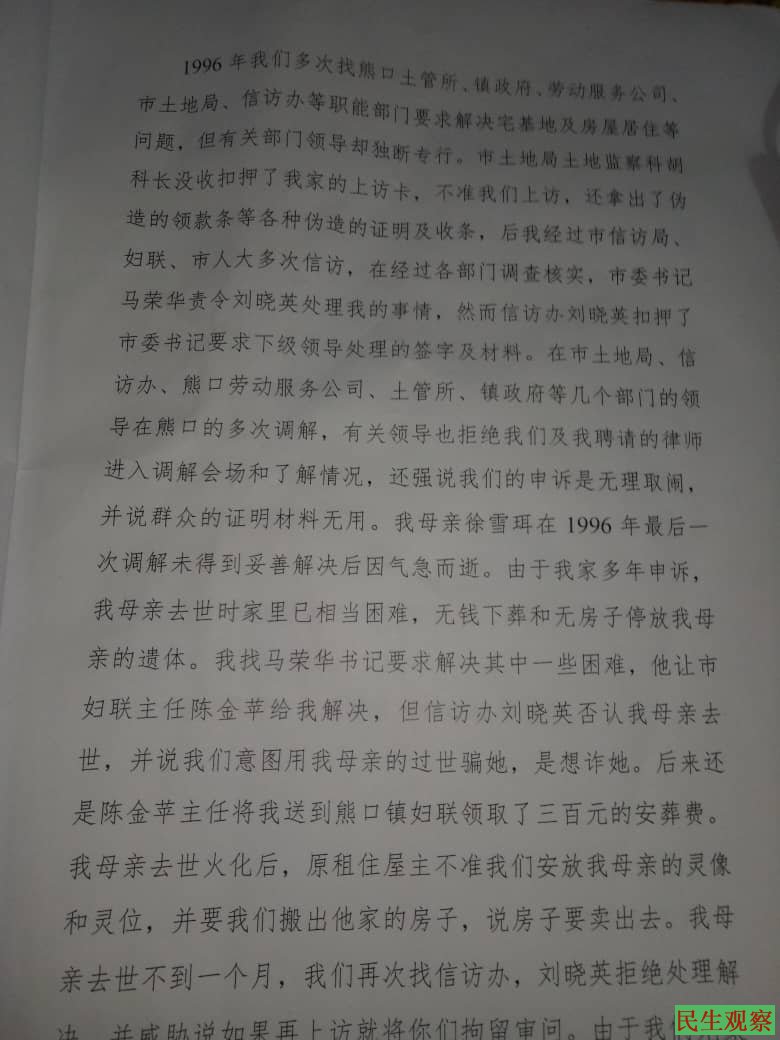 1996 年我们多次找熊口土管所、镇政府、劳动服务公司、
市土地局、信访办等职能部门要求解决宅基地及房屋居住等
问题，但有关部门领导却独断专行。市土地局土地监察科胡
科长没收扣押了我家的上访卡，不准我们上访，还拿出了伪
造的领款条等各种伪造的证明及收条，后我经过市信访局、
妇联、市人大多次信访，在经过各部门调查核实，市委书记
马荣华责令刘晓英处理我的事情，然而信访办刘晓英扣押了
市委书记要求下级领导处理的签字及材料。在市土地局、信
访办、熊口劳动服务公司、土管所、镇政府等几个部门的领
导在熊口的多次调解，有关领导也拒绝我们及我聘请的律师
进入调解会场和了解情况，还强说我们的申诉是无理取闹，
并说群众的证明材料无用。我母亲徐雪珥在 1996 年最后一
次调解未得到妥善解决后因气急而逝。由于我家多年申诉，
我母亲去世时家里已相当困难，无钱下葬和无房子停放我母
亲的遗体。我找马荣华书记要求解决其中一些困难，他让市
妇联主任陈金苹给我解决，但信访办刘晓英否认我母亲去
世，并说我们意图用我母亲的过世骗她，是想诈她。后来还
是陈金苹主任将我送到熊口镇妇联领取了三百元的安葬费。
我母亲去世火化后，原租住屋主不准我们安放我母亲的灵像
和灵位，并要我们搬出他家的房子，说房子要卖出去。我母
亲去世不到一个月，我们再次找信访办，刘晓英拒绝处理解
决，并威胁说如果再上访就将你们拘留审问。由于我们
民生观察